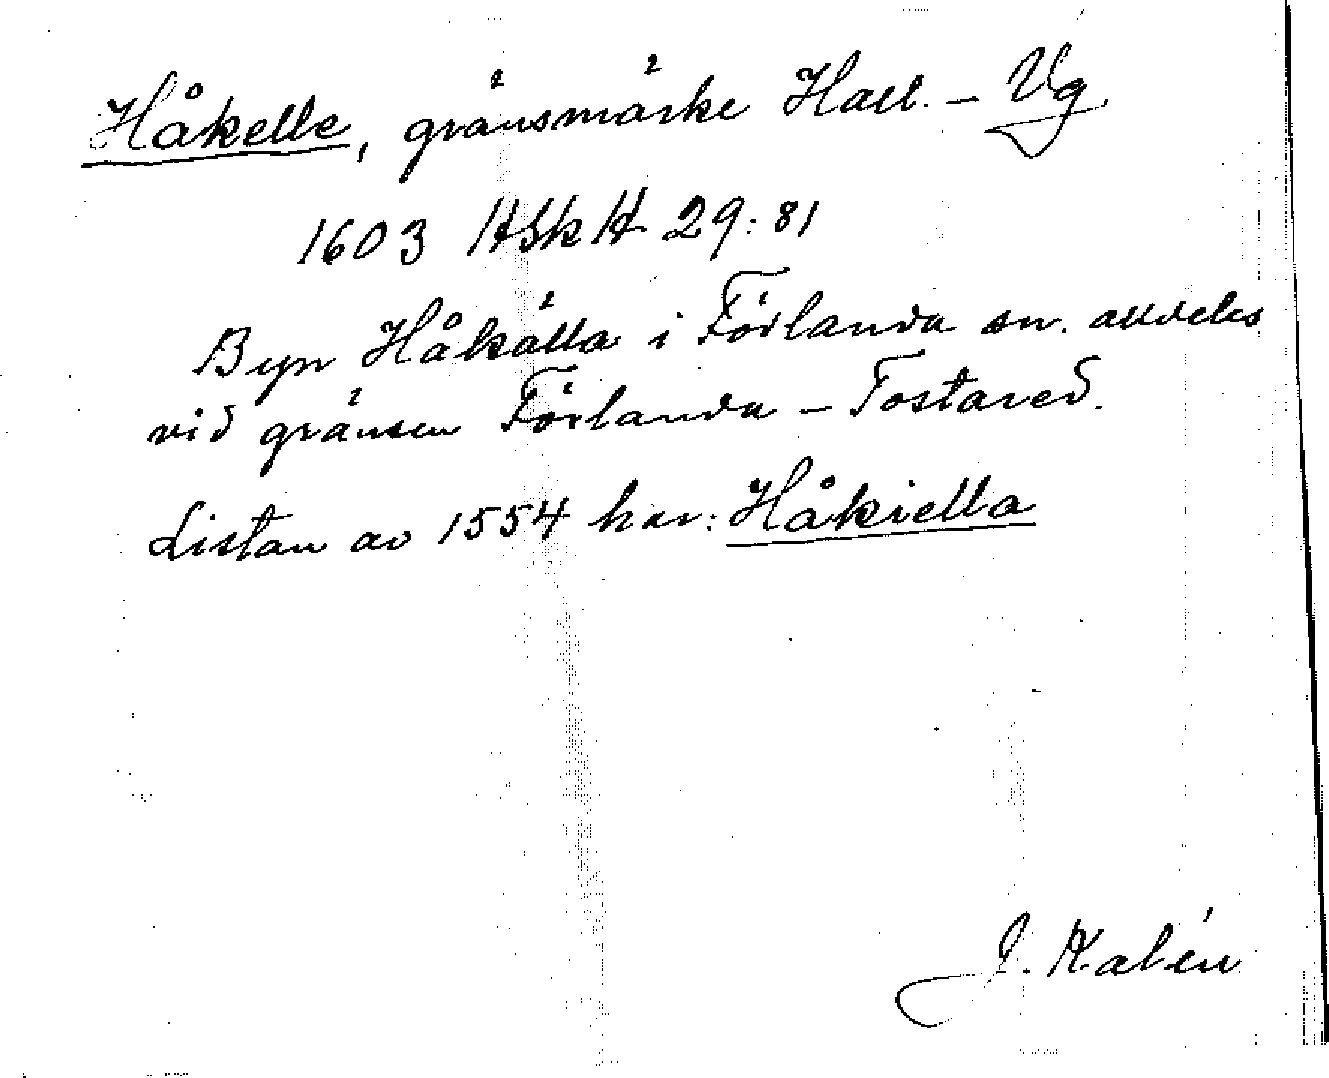 Håkelle, gränsmärke Hall. - Vg
1603 HSkH 29:81
Byn Håkälla i Förlanda sn. alldeles
vid gränsen Förlanda - Tostared.
Listan av 1554 har: Håkiella
J. Kalén